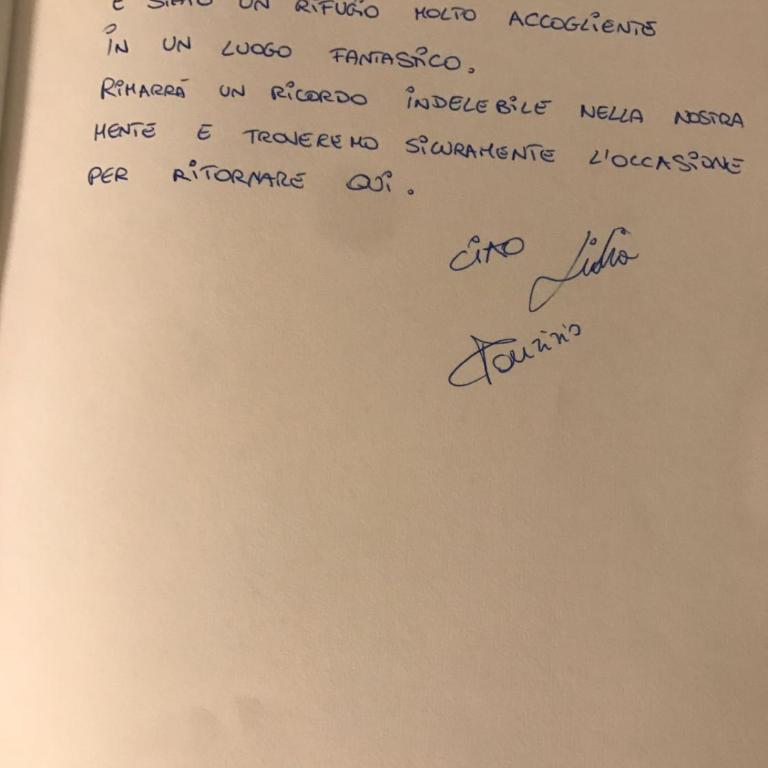 È STATO UN RIFUGIO MOLTO ACCOGLIENTE
IN UN LUOGO FANTASTICO.
RIMARRÁ UN RICORDO INDELEBILE NELLA NOSTRA
MENTE E TROVEREMO SICURAMENTE L'OCCASIONE
PER RITORNARE QUI.
CIAO Lidia